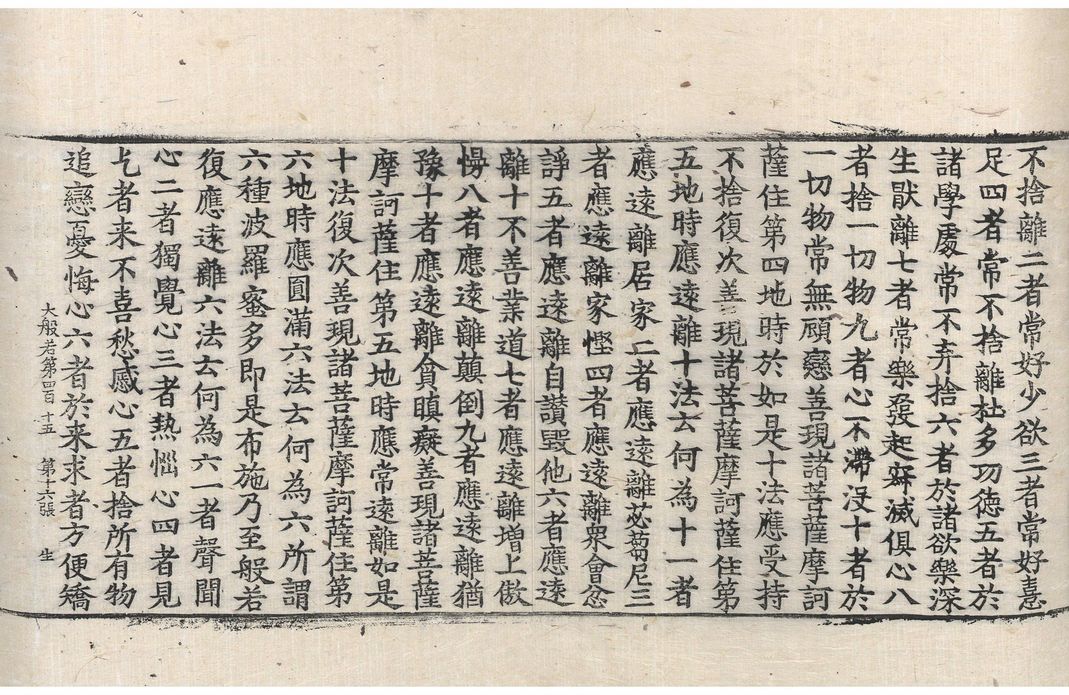 不捨離二者常好少欲三者常好憙
足四者常不捨離杜多功徳五者於
諸學處常不弃捨六者於諸欲樂深
生猒離七者常樂發起寂滅俱心八
者捨一切物九者心不滯没十者於
一切物常無顧戀善現諸菩薩摩訶
薩住第四地時於如是十法應受持
不捨復次善現諸菩薩摩訶薩住第
五地時應遠離十法云何為十一者
應遠離居家二者應遠離苾蒭尼三
者應遠離家慳四者應遠離衆會忿
諍五者應遠離自讃毀他六者應遠
離十不善業道七者應遠離増上傲
慢八者應遠離顛倒九者應遠離猶
豫十者應遠離貪瞋癡善現諸菩薩
摩訶薩住第五地時應常遠離如是
十法復次善現諸菩薩摩訶薩住第
六地時應圓滿六法云何為六所謂
六種波羅蜜多即是布施乃至般若
復應遠離六法云何為六一者聲聞
心二者獨覺心三者熱惱心四者見
乞者来不喜愁慼心五者捨所有物
追戀憂悔心六者於来求者方便矯
大般若第四百十五 第十六張 生